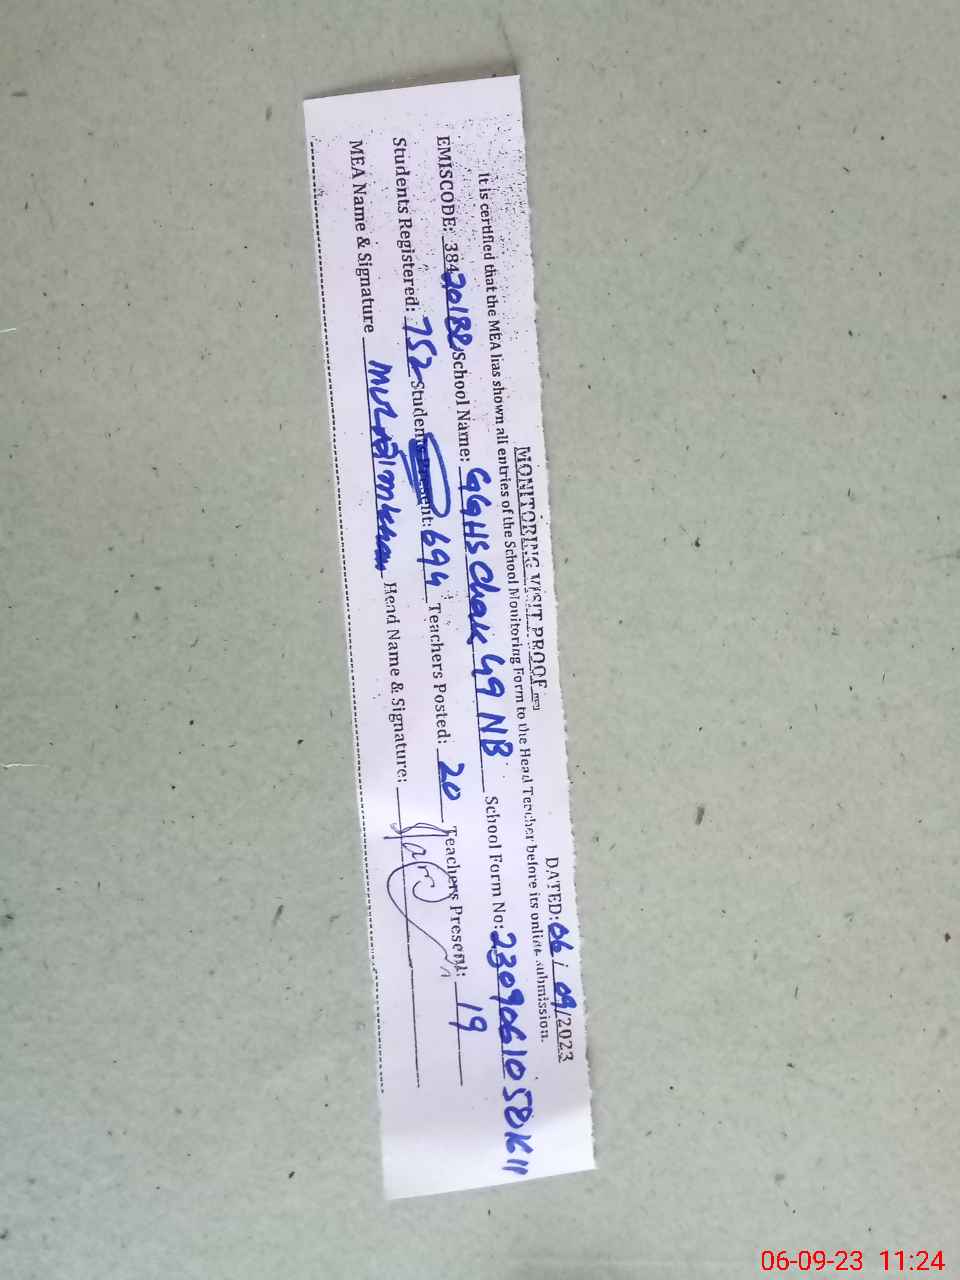 MONITORING VISIT PROOF
DATED: 06/09/2023
It is certified that the MEA has shown all entries of the School Monitoring Form to the Head Teacher before its online submission.
EMISCODE: 384 School Name: GGHS Chak 49 NB School Form No: 
Students Registered: 752 Students Present: 694 Teachers Posted: 20 Teachers Present: 19
MEA Name & Signature Head Name & Signature:
06-09-23 11:24